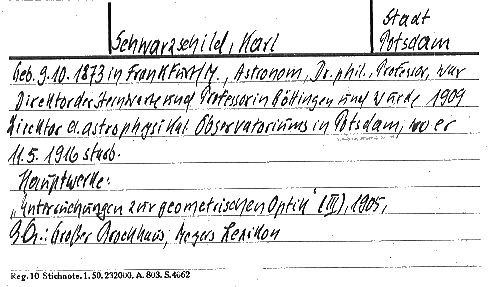 Stadt
Schwarzschild, Karl
Potsdam
Geb. 9.10.1873 in Frankfurt/M., Astronom, Dr. phil., Professor, war
Direktor der Sternwarte und Professor in Göttingen und wurde 1909
Direktor d. astrophysikal. Observatoriums in Potsdam, wo er
11.5.1916 starb.
Hauptwerke:
„Untersuchungen zur geometrischen Optik" (III), 1905,
Qu.: Großer Brockhaus, Meyers Lexikon
Reg. 10 Stichnote. 1. 50. 232000. A. 803. S. 4662